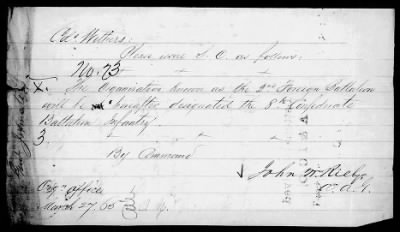 Col Withers:
Please issue S. O. as follows:
No. 73 + + +
X. The Organization known as the 2nd Foreign Battalion
will be hereafter designated the 8th Confederate
Battalion Infantry.
3 + + +
By Command
John W. Riely
Org. Office
March 27, 65